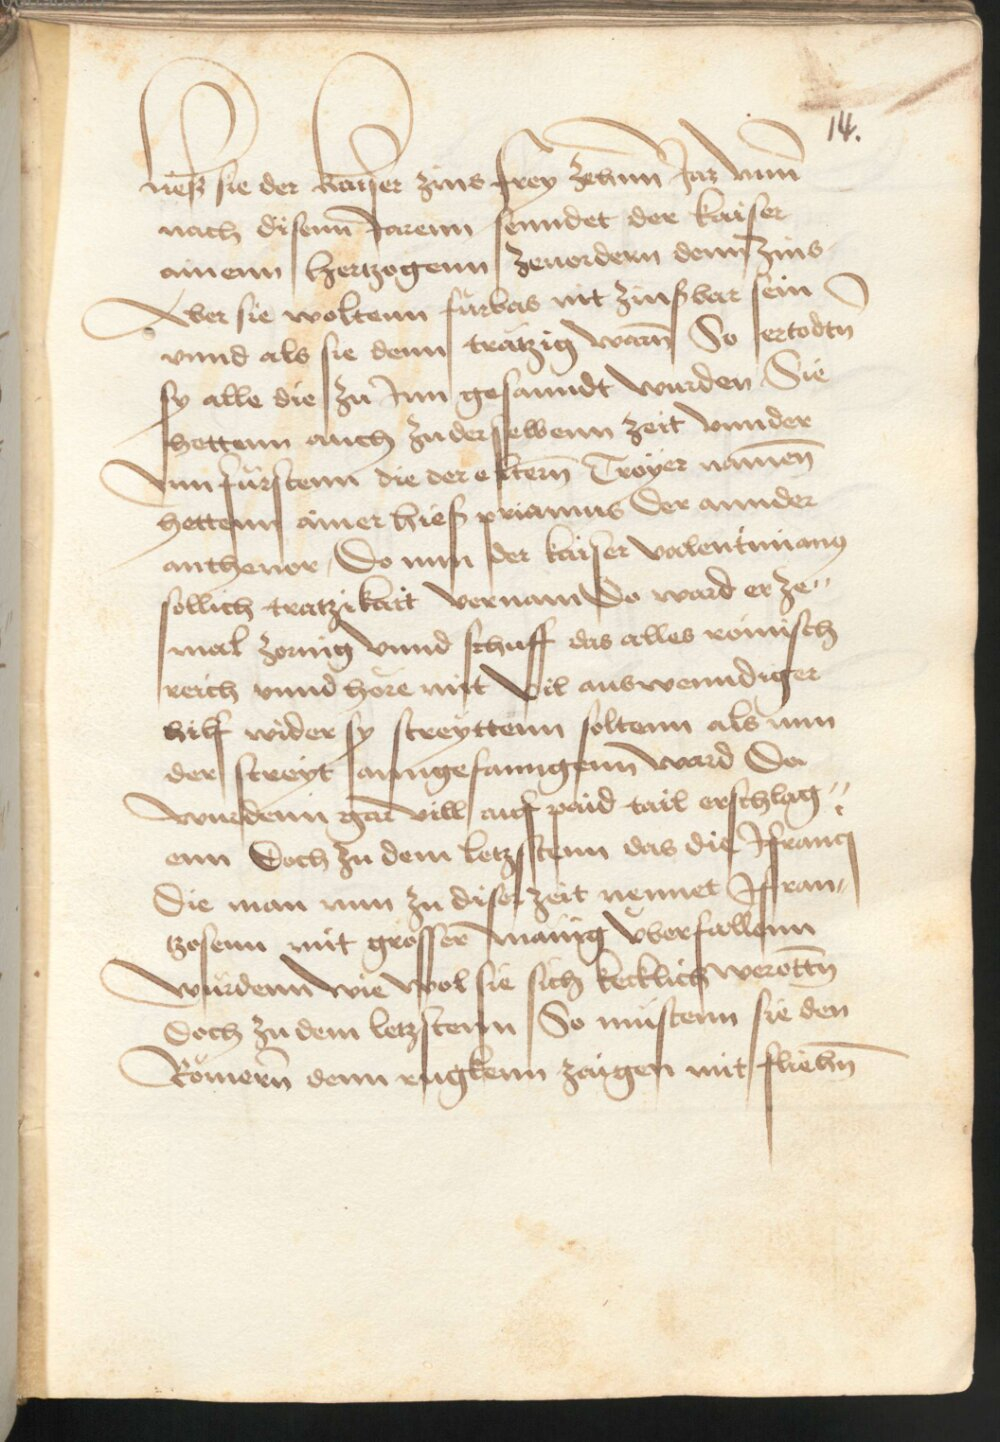 14.
ließ sie der kaiser zins frey zehenn Jar vnnd
nach disenn Jarenn senndet der kaiser
ainenn hertzogenn zeuordern denn zins
Aber sie woltenn fürbas nit zinßbar sein
vnnd als sie denn trätzig warn So ertodtn̄
sy alle die zu Inn gesanndt wurden Sie
hettenn auch zu derselbenn zeit vnnder
Inn fürstenn die der eltern Troyer namen
hettenn ainer hieß priamus Der annder
anthenor, Do nun der kaiser valentinianus
sollich tratzikait vernam Do ward er ze"
mal zornig vnnd schuff das alles römisch
reich vnnd höre mit vil auswenndiger
hilf wider sy streyttenn soltenn als nun
der streyt anngefanngenn ward Da
wurdenn gar vill auf paid tail erschlag"
enn Doch zu dem letzstenn das die Ffranci
Die man nun zu diser zeit nennet Ffran"
tzosenn mit grosser mänig vberfallenn
wurdenn wie wol sie sich kecklich werottn̄
Doch zu dem letzstenn So müstenn sie den
Römern̄ denn rugkenn zaigen mit fliehn̄